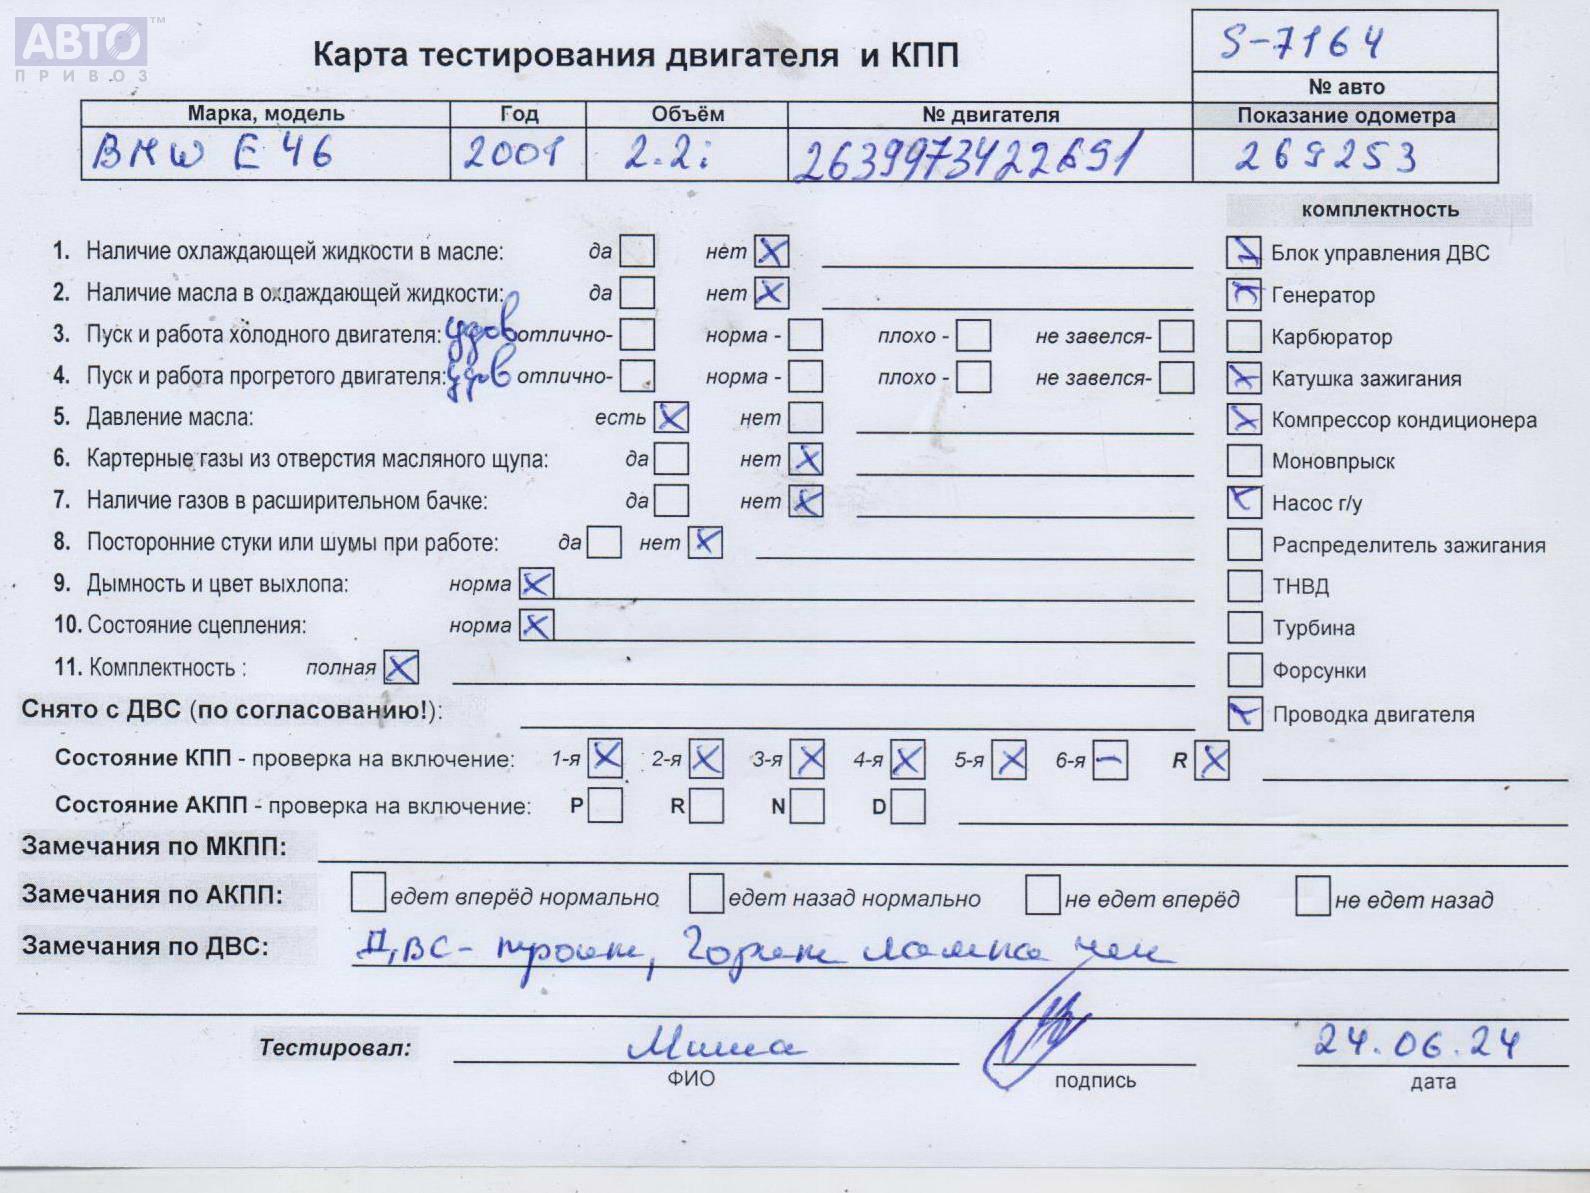 АВТО™
ПРИВОЗ
Карта тестирования двигателя и КПП
S-7164
№ авто
Марка, модель Год Объём № двигателя Показание одометра
BMW E46 2001 2.2i 2639973422691 269253
комплектность
1. Наличие охлаждающей жидкости в масле: да нет Блок управления ДВС
2. Наличие масла в охлаждающей жидкости: да нет Генератор
3. Пуск и работа холодного двигателя: удов отлично- норма - плохо - не завелся- Карбюратор
4. Пуск и работа прогретого двигателя: удов отлично- норма - плохо - не завелся- Катушка зажигания
5. Давление масла: есть нет Компрессор кондиционера
6. Картерные газы из отверстия масляного щупа: да нет Моновпрыск
7. Наличие газов в расширительном бачке: да нет Насос г/у
8. Посторонние стуки или шумы при работе: да нет Распределитель зажигания
9. Дымность и цвет выхлопа: норма ТНВД
10. Состояние сцепления: норма Турбина
11. Комплектность : полная Форсунки
Снято с ДВС (по согласованию!): Проводка двигателя
Состояние КПП - проверка на включение: 1-я 2-я 3-я 4-я 5-я 6-я R
Состояние АКПП - проверка на включение: P R N D
Замечания по МКПП:
Замечания по АКПП: едет вперёд нормально едет назад нормально не едет вперёд не едет назад
Замечания по ДВС: ДВС- троит, Горит лампа чек
Тестировал: Миша 24.06.24
ФИО подпись дата